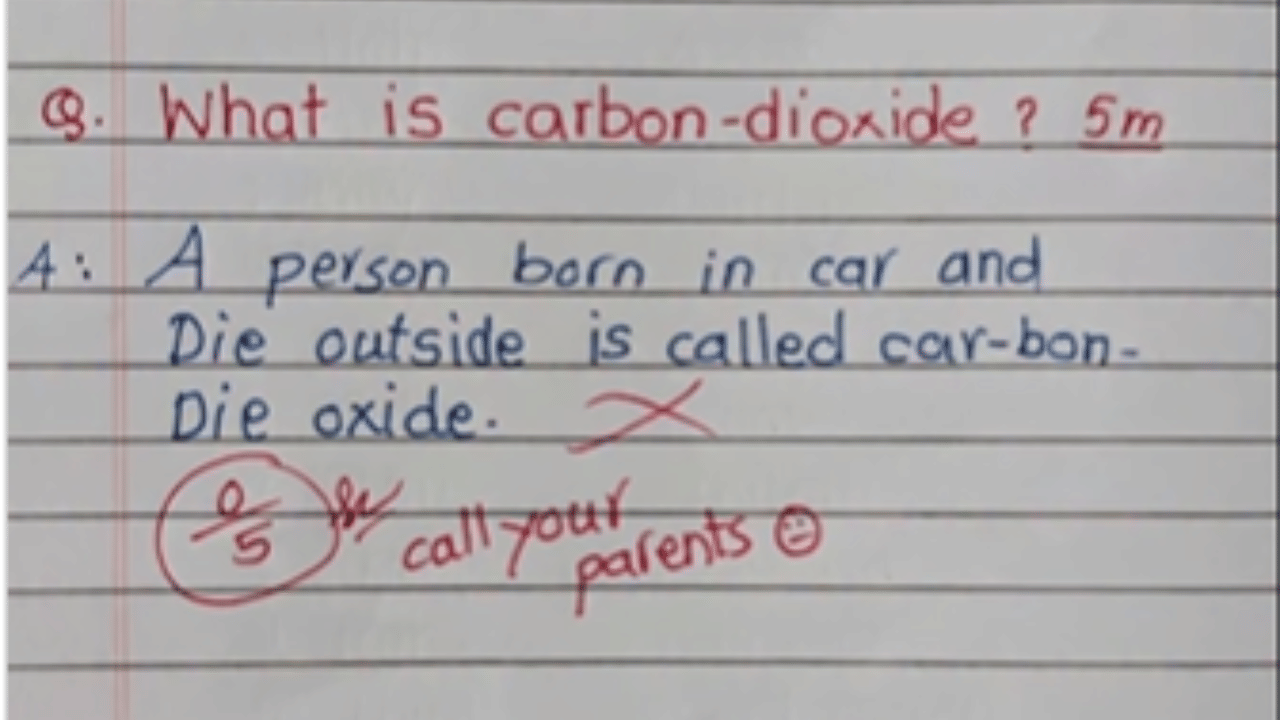 Q. What is carbon-dioxide ? 5m
A: A person born in car and
Die outside is called car-bon-
Die oxide.
0/5 call your
parents